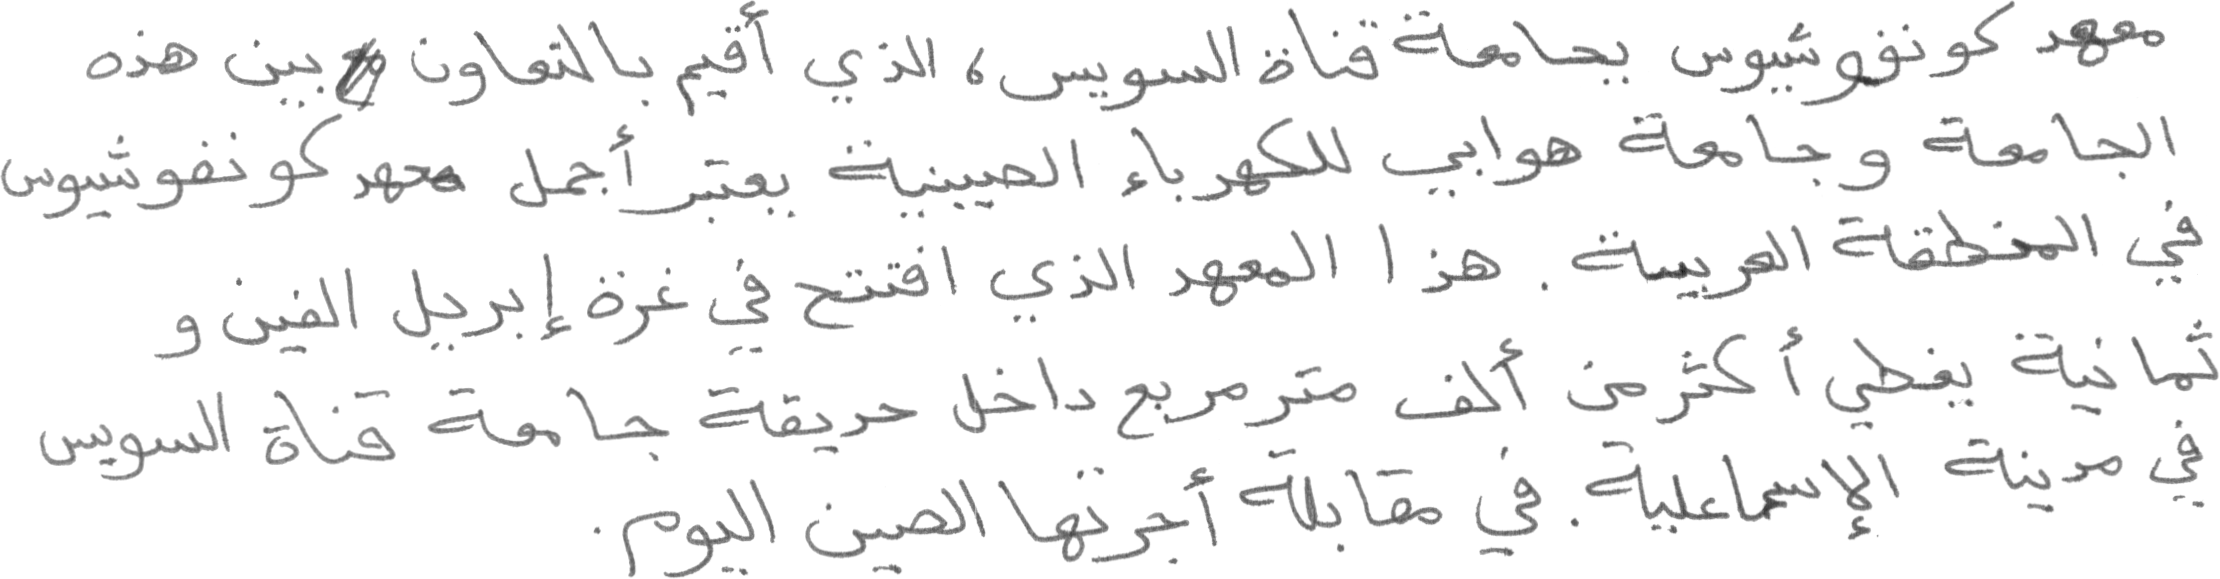 معهد كونفوشيوس بجامعة قناة السويس، الذي أقيم بالتعاون بين هذه
الجامعة وجامعة هوابي للكهرباء الصينية يعتبر أجمل معهد كونفوشيوس
في المنطقة العربية. هذا المعهد الذي افتتح في غزة إبريل الفين و
ثمانية يغطي أكثر من ألف متر مربع داخل حديقة جامعة قناة السويس
في مدينة الإسماعلية. في مقابلة أجرتها الصين اليوم.